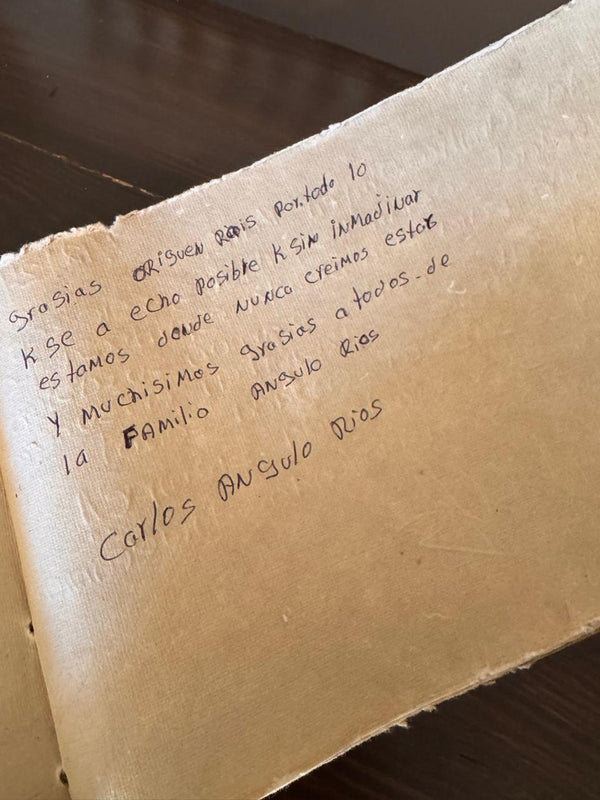 grasias ORiguen Rais por.todo lo
K se a echo posible K sin inmadinar
estamos donde nunca creimos estar
y muchisimos grasias a todos-de
la FAMilio ANgulo Rios
Carlos ANgulo Rios